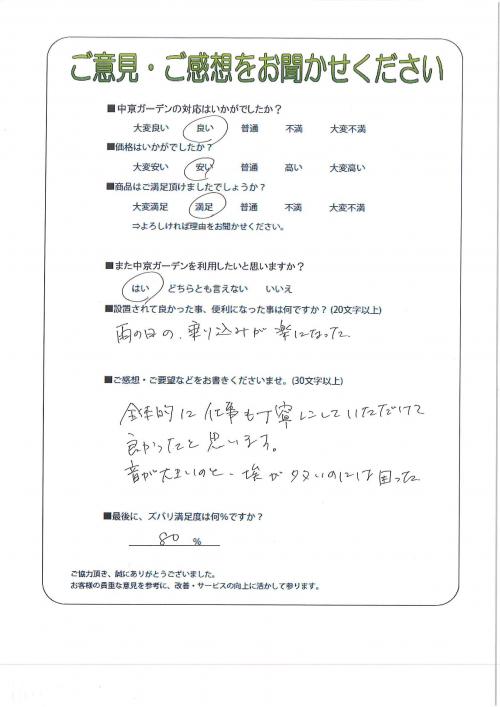 ご意見・ご感想をお聞かせください
■中京ガーデンの対応はいかがでしたか？
大変良い 良い 普通 不満 大変不満
■価格はいかがでしたか？
大変安い 安い 普通 高い 大変高い
■商品はご満足頂けましたでしょうか？
大変満足 満足 普通 不満 大変不満
⇒よろしければ理由をお聞かせください。
■また中京ガーデンを利用したいと思いますか？
はい どちらとも言えない いいえ
■設置されて良かった事、便利になった事は何ですか？(20文字以上)
雨の日の、乗り込みが楽になった
■ご感想・ご要望などをお書きくださいませ。(30文字以上)
全体的に仕事も丁寧にしていただけて
良かったと思います。
音が大きいのと、埃が多いのには困った
■最後に、ズバリ満足度は何％ですか？
80 %
ご協力頂き、誠にありがとうございました。
お客様の貴重な意見を参考に、改善・サービスの向上に活かして参ります。